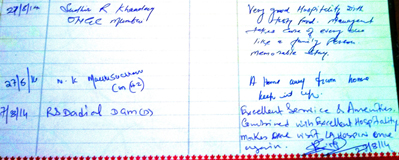 27/6/14 Sudhir R Khandare
ONGC Mumbai
Very good Hospitality with
tasty food. Management
takes care of every one
like a family person
memorable stay.
27/6/14 N.K
A home away from home
keep it up.
7/3/14 RS Dadial DGM(O)
Excellent Service & Amenities.
Combined with Excellent Hospitality
makes one visit
again.